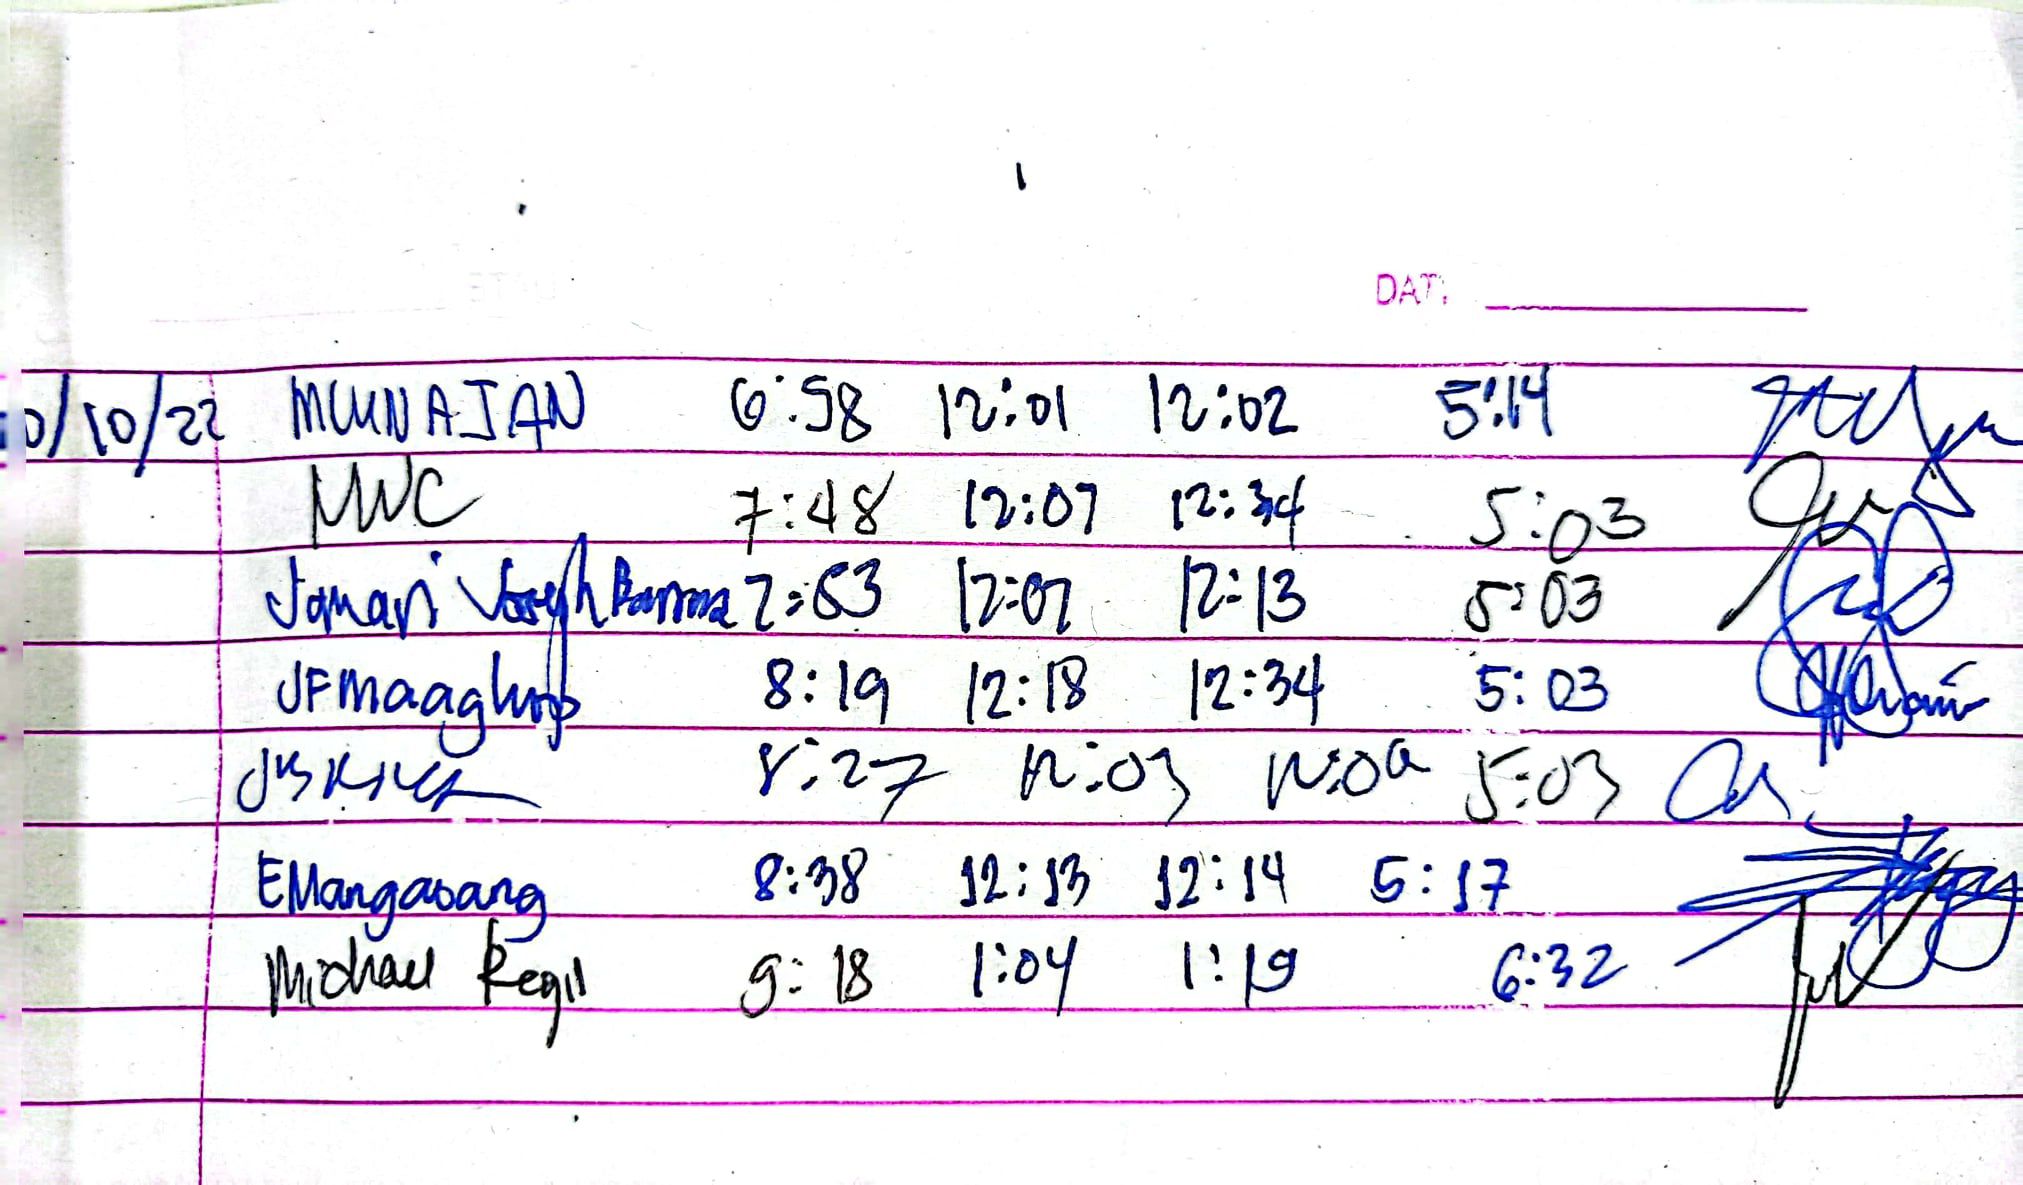 DAT
0/10/22 MUNAJAN 6:58 12:01 12:02 5:14
NWC 7:48 12:07 12:34 5:03
Jomari Joseph 7:53 12:07 12:13 5:03
JFmaaghop 8:19 12:18 12:34 5:03
8:27 12:03 5:03
EMangasang 8:38 12:13 12:14 5:17
Michael Regil 9:18 1:04 1:19 6:32